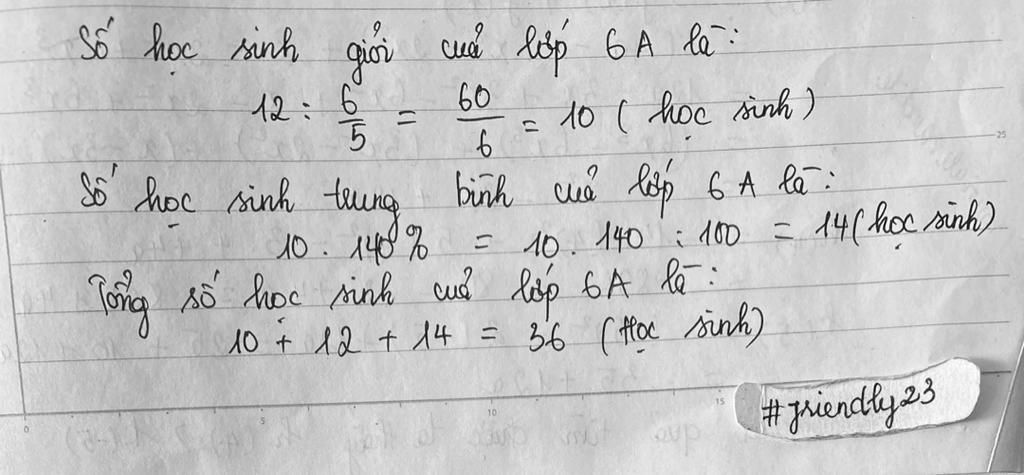 Số học sinh giỏi cuả lớp 6A là:
12 : 6/5 = 60/6 = 10 ( học sinh )
Số học sinh trung bình cuả lớp 6A là:
10 . 140% = 10 . 140 : 100 = 14 ( học sinh )
Tổng số học sinh cuả lớp 6A là:
10 + 12 + 14 = 36 ( Học sinh )
#friendly23
25
0 5 10 15